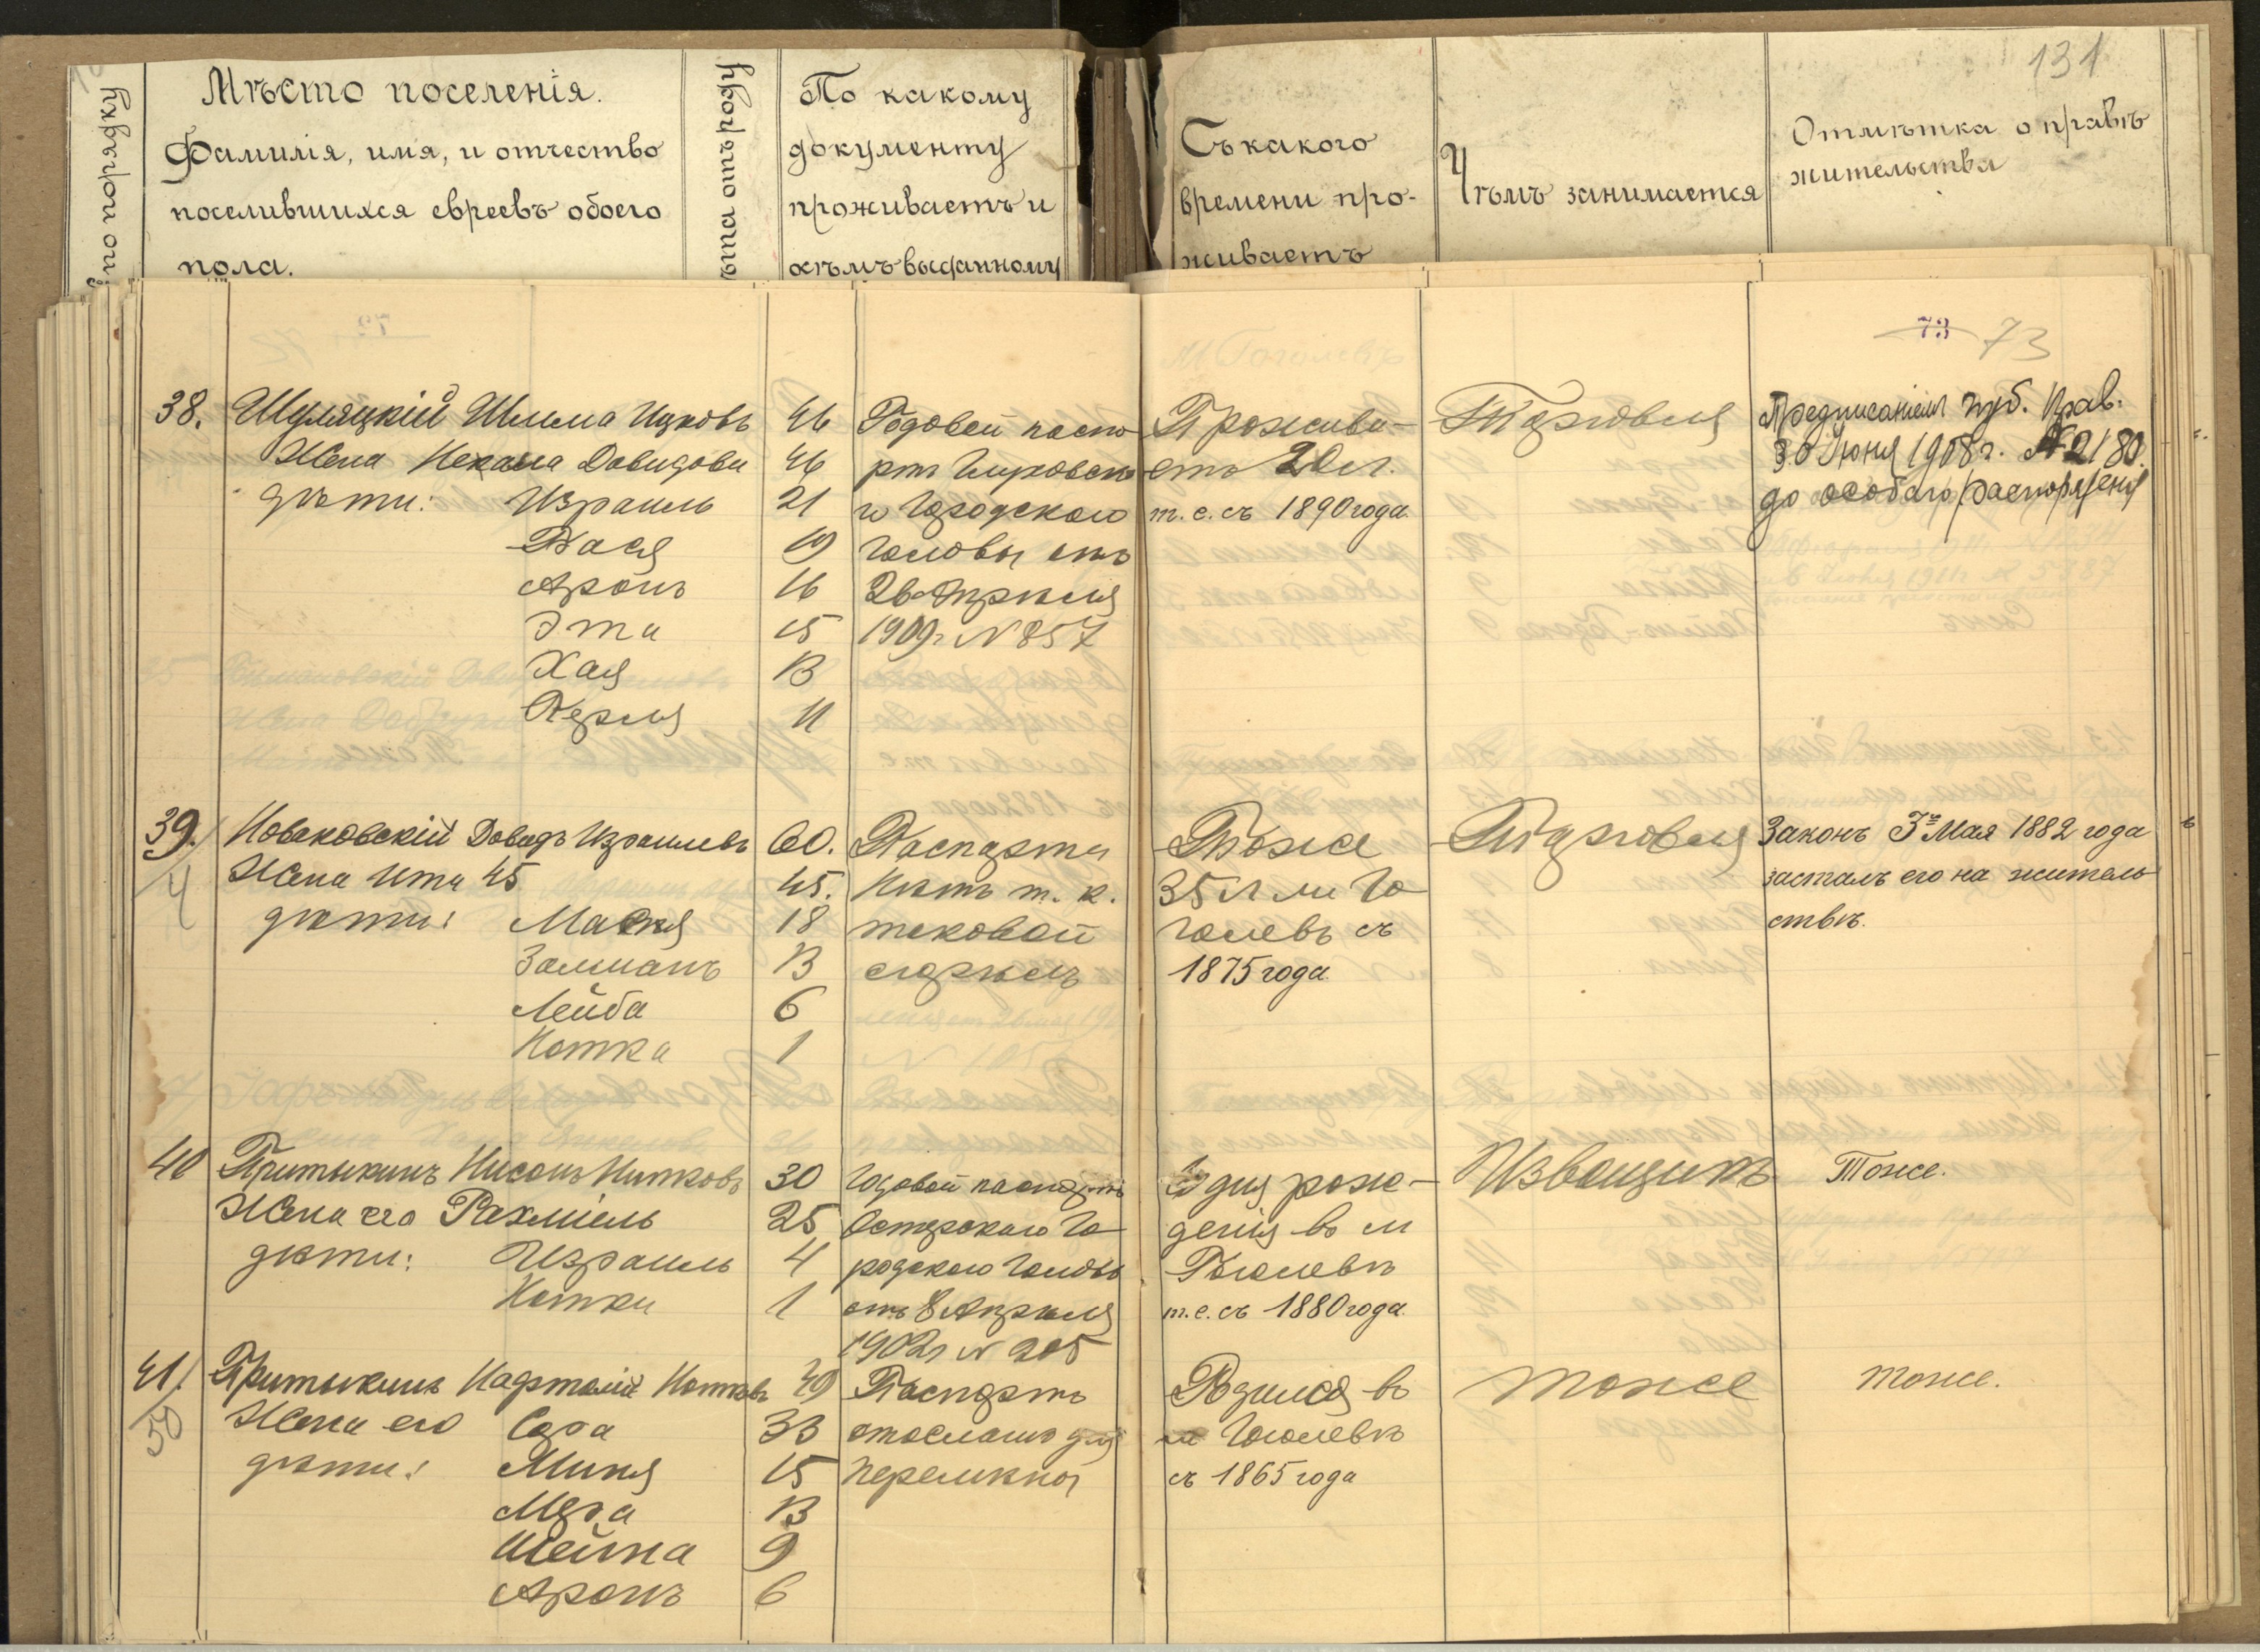 131
№ по порядку
Мѣсто поселенія.
Фамилія, имя, и отчество
поселившихся евреевъ обоего
пола.
Лѣта отъ роду
По какому
документу
проживаетъ и
кѣмъ выданному
Съ какого
времени про-
живаетъ
Чѣмъ занимается
Отмѣтка о правѣ
жительства
73 73
38. Шуляцкій Шлема Ицковъ 46
Жена Нехама Довидова 46
дѣти: Израиль 21
Бася 19
Аронъ 16
Эта 15
Хая 13
Перля 11
Годовой паспо-
ртъ
го Городского
Головы отъ
26 Апрѣля
1909 г. № 857
Прожива-
етъ 20 л.
т. е. съ 1890 года.
Торговля
Предписаніемъ Губ. Прав.
30 Іюня 1908 г. № 2180.
до особаго распоряженія
39. Новаковскій Довидъ Израилевъ 60.
4
Жена Ита 45 45.
дѣти: Мася 18
Залманъ 13
Лейба 6
Нотка 1
Паспорта
Нѣтъ т. к.
таковой
сгорѣлъ
Тоже
35 л м. Го-
голевъ съ
1875 года.
Торговля
Законъ 3го Мая 1882 года
засталъ его на житель-
ствѣ.
40 Притыкинъ Нисонъ Нотковъ 30
Жена его Рахміель 25
дѣти: Израиль 4
Нотка 1
Годовой паспортъ
Остерскаго Го-
родского Головы
отъ 8 Апрѣля
1902 г № 205
Со дня рож-
денія въ м
Гоголевѣ
т. е. съ 1880 года.
Извощикъ
Тоже.
41. Притыкинъ Нафталій Нотковъ 49
50
Жена его Сора 33
дѣти: Миня 15
Мера 13
Шейна 9
Аронъ 6
Паспортъ
отосланъ для
перемѣны
Родился въ
м Гоголевѣ
съ 1865 года
тоже
тоже.